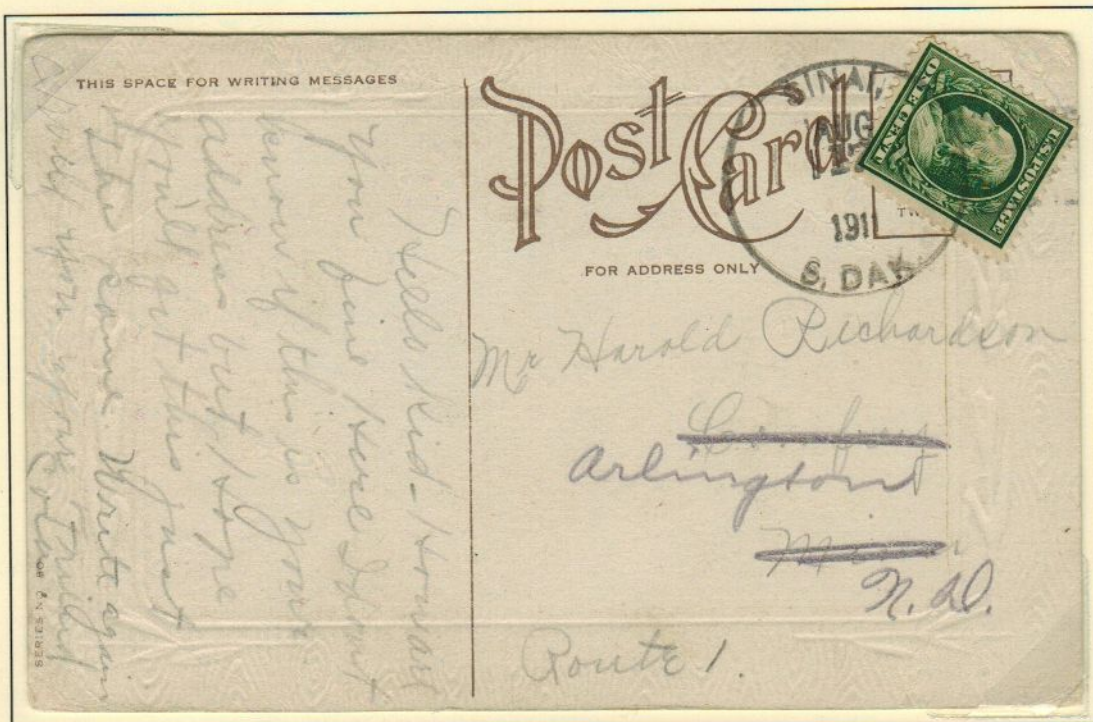 THIS SPACE FOR WRITING MESSAGES
Hello Kid - How are
you fine here I dont
know if this is your
address but hope
you'll get this just
the same. Write again
your
SERIES NO. 80
Post Card
FOR ADDRESS ONLY
SINAI,
AUG
191
S. DAK.
ONE CENT
U.S. POSTAGE
TW
Mr Harold Richardson
Comfrey
Arlington
Minn
Route 1.